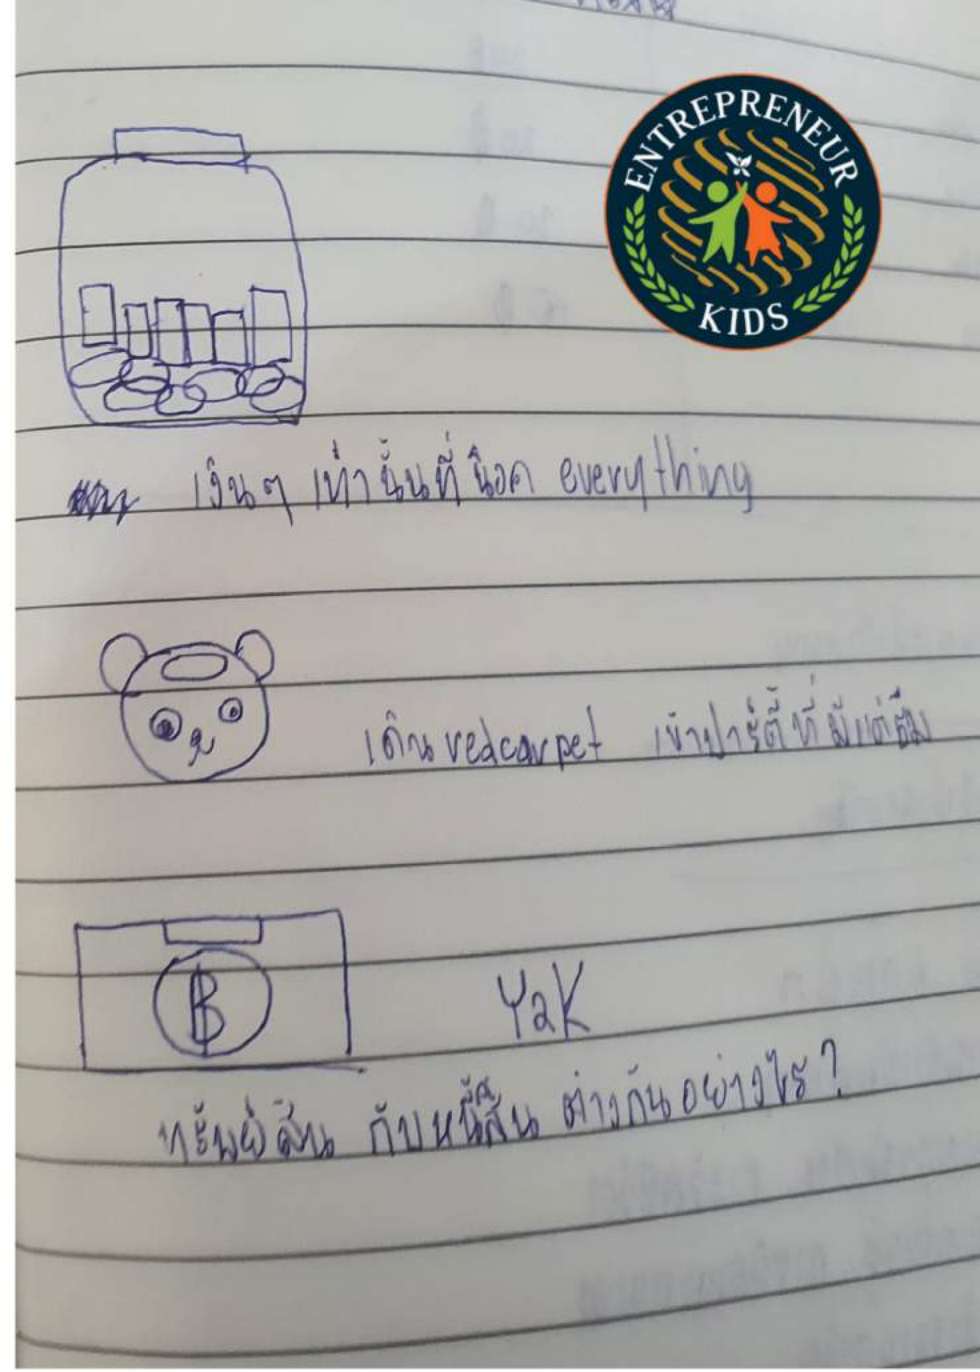 ENTREPRENEUR
KIDS
เงินๆ เท่านั้นที่น็อค everything
เดิน redcarpet เข้าปาร์ตี้ที่มีแต่ธีม
฿
Y2K
ทรัพย์สิน กับหนี้สิน ต่างกันอย่างไร?